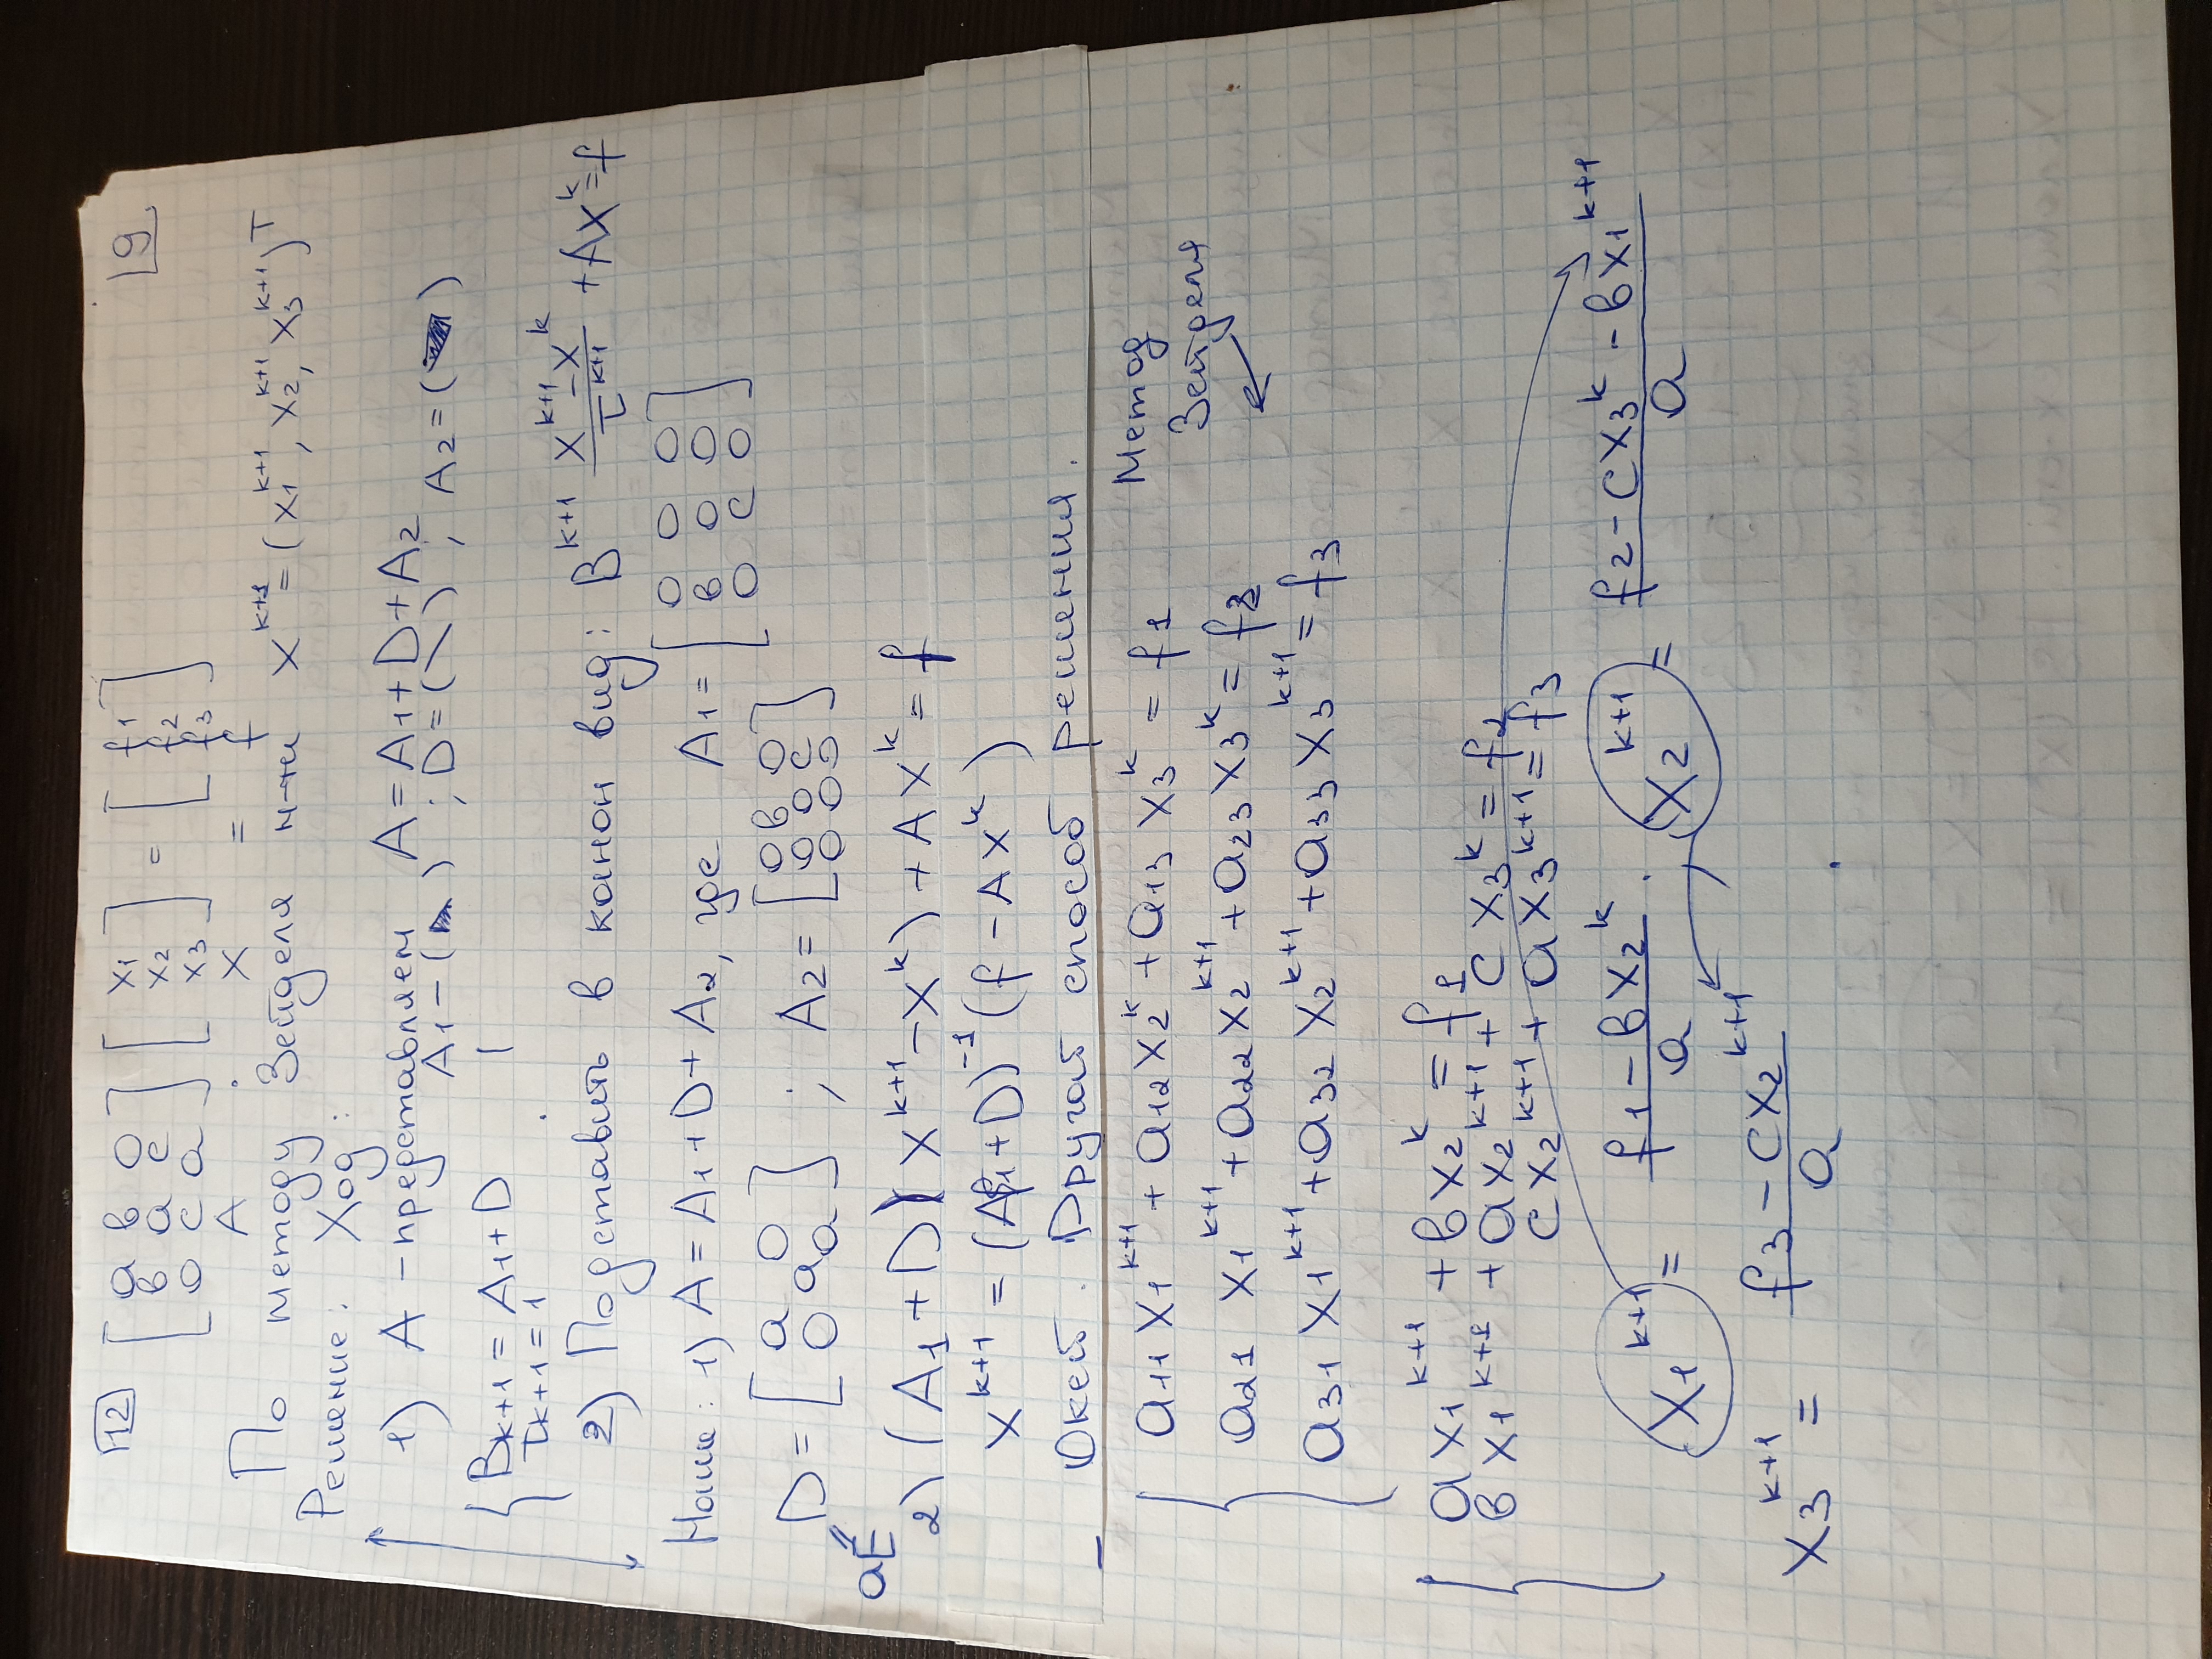 12 [a b 0] [x1] = [f1] 9
[b a c] [x2] [f2]
[0 c a] [x3] [f3]
A · X = f
По методу Зейделя н-ти x^{k+1} = (x1^{k+1}, x2^{k+1}, x3^{k+1})^T
Решение: Ход:
1) A - представляем A = A1 + D + A2
A1 - (◣); D = (\); A2 = (◥)
{ B_{k+1} = A1 + D
τ_{k+1} = 1
2) Подставить в канон вид: B^{k+1} (x^{k+1} - x^k)/τ^{k+1} + Ax^k = f
Наше: 1) A = A1 + D + A2, где A1 = [0 0 0]
[b 0 0]
[0 c 0]
D = [a 0] ; A2 = [0 b 0]
[a] [0 0 c]
[0 a] [0 0 0]
aE
2) (A1 + D)(x^{k+1} - x^k) + Ax^k = f
x^{k+1} = (A1 + D)^{-1} (f - Ax^k)
Окей. Другой способ решения.
{ a11 x1^{k+1} + a12 x2^k + a13 x3^k = f1 Метод
Зейделя
a21 x1^{k+1} + a22 x2^{k+1} + a23 x3^k = f2
a31 x1^{k+1} + a32 x2^{k+1} + a33 x3^{k+1} = f3
{ a x1^{k+1} + b x2^k = f1
b x1^{k+1} + a x2^{k+1} + c x3^k = f2
c x2^{k+1} + a x3^{k+1} = f3
x1^{k+1} = (f1 - b x2^k)/a . x2^{k+1} = (f2 - c x3^k - b x1^{k+1})/a
x3^{k+1} = (f3 - c x2^{k+1})/a .